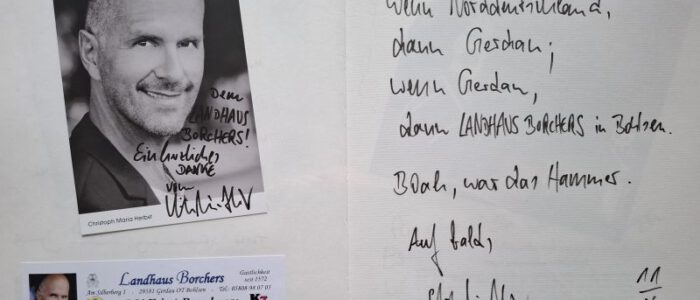 Dem
LANDHAUS
BORCHERS!
Ein herzliches
DANKE
vom
Christoph Maria Herbst
Landhaus Borchers
Gastlichkeit
seit 1572
Am Silberberg 1 · 29581 Gerdau OT Bohlsen · Tel. 05808 98 07 03
K3
Wenn Norddeutschland,
dann Gerdau;
wenn Gerdau,
dann LANDHAUS BORCHERS in Bohlsen.
Boah, war das Hammer.
Auf bald,
11